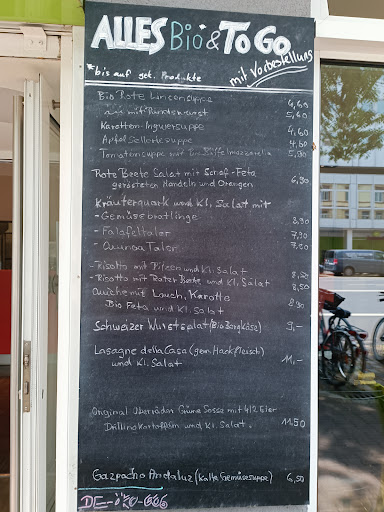 ALLES Bio & TO GO
*bis auf gek. Produkte
mit Vorbestellung
Bio Rote Linsensuppe 4,60
aus mit Rindswurst 5,60
Karotten-Ingwersuppe 4,60
Apfel Selleriesuppe 4,60
Tomatensuppe mit Büffelmozzarella 5,90
Rote Beete Salat mit Schaf-Feta
gerösteten Mandeln und Orangen 6,90
Kräuterquark und Kl. Salat mit
- Gemüsebratlinge 8,90
- Falafeltaler 7,90
- Quinoa Taler 7,50
- Risotto mit Pilzen und Kl. Salat 8,20
- Risotto mit Roter Beete und Kl. Salat 8,50
Quiche mit Lauch, Karotte
Bio Feta und Kl. Salat 8,90
Schweizer Wurstsalat (Bio Bergkäse) 9,-
Lasagne della Casa (gem. Hackfleisch)
und Kl. Salat 11,-
Original Oberräder Grüne Sosse mit 4/2 Eier
Drillingkartoffeln und Kl. Salat. 11.50
Gazpacho Andaluz (Kalte Gemüsesuppe) 6,50
DE-ÖKO-006